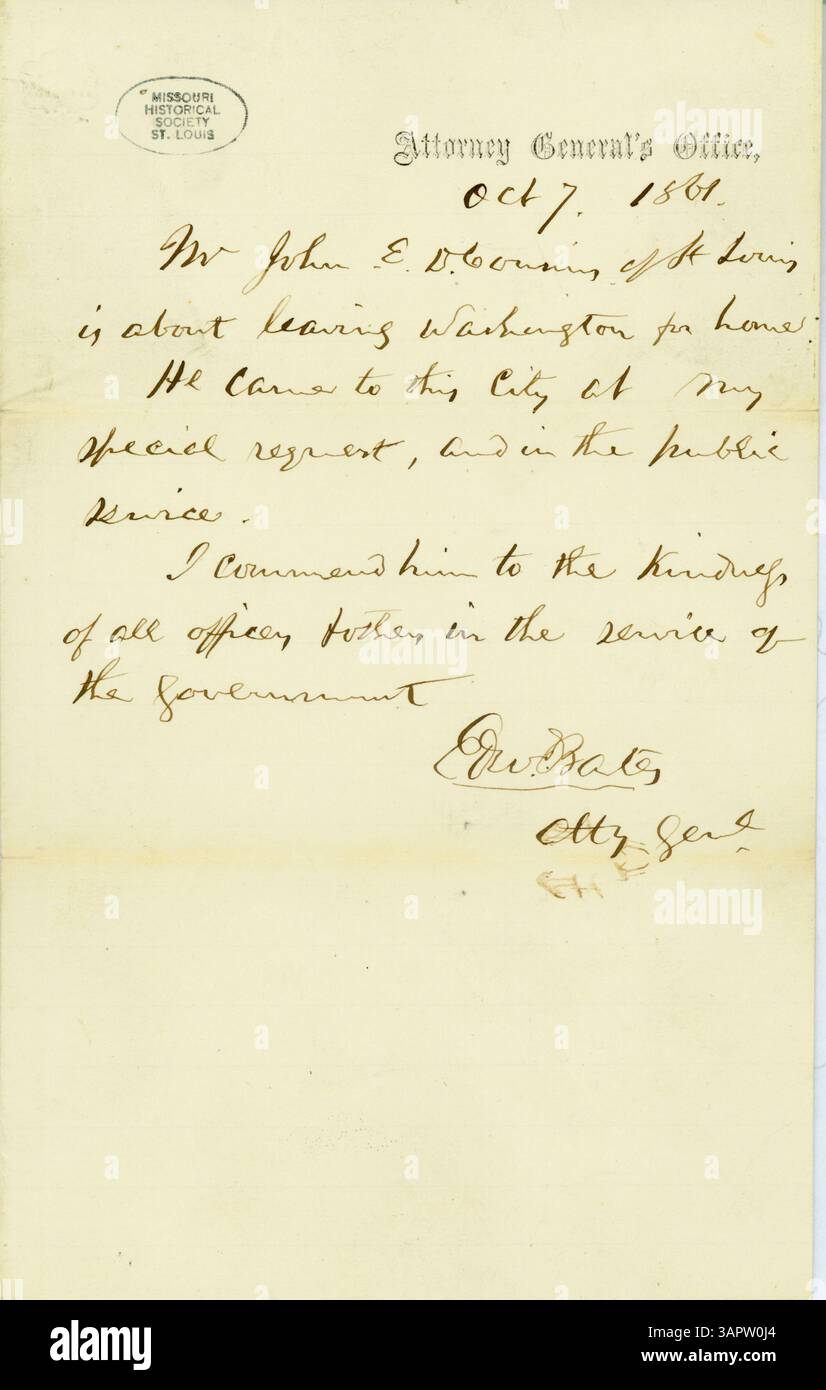 MISSOURI
HISTORICAL
SOCIETY
ST. LOUIS
Attorney General's Office,
Oct 7. 1861.
Mr John E. D. Cousins, of St Louis
is about leaving Washington for home.
He came to this City at my
special request, and in the public
service.
I commend him to the kindness
of all officers & others in the service of
the Government
Edw. Bates
Atty. Genl.
alamy
alamy
alamy
alamy
alamy
Image ID: 3APW0J4
www.alamy.com